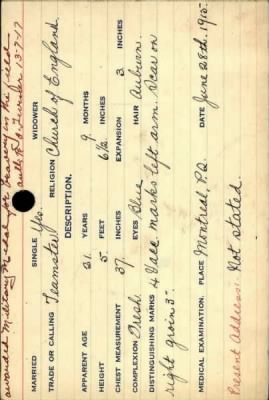 awarded Military Medal for bravery in the field
auth R.O.
13-7-17
MARRIED SINGLE Yes. WIDOWER
TRADE OR CALLING Teamster RELIGION Church of England
DESCRIPTION.
APPARENT AGE 21 YEARS 9 MONTHS
HEIGHT 5 FEET 6½ INCHES
CHEST MEASUREMENT 37 INCHES EXPANSION 3 INCHES
COMPLEXION Fresh. EYES Blue HAIR Auburn.
DISTINGUISHING MARKS 4 Vacc marks left arm. Scar on
right groin 3".
MEDICAL EXAMINATION. PLACE Montreal, P.Q. DATE June 28th. 1915.
Present Address: Not stated.